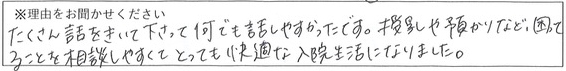 ※理由をお聞かせください
たくさん話をきいて下さって何でも話しやすかったです。授乳や預かりなど、困って
ることを相談しやすくてとっても快適な入院生活になりました。